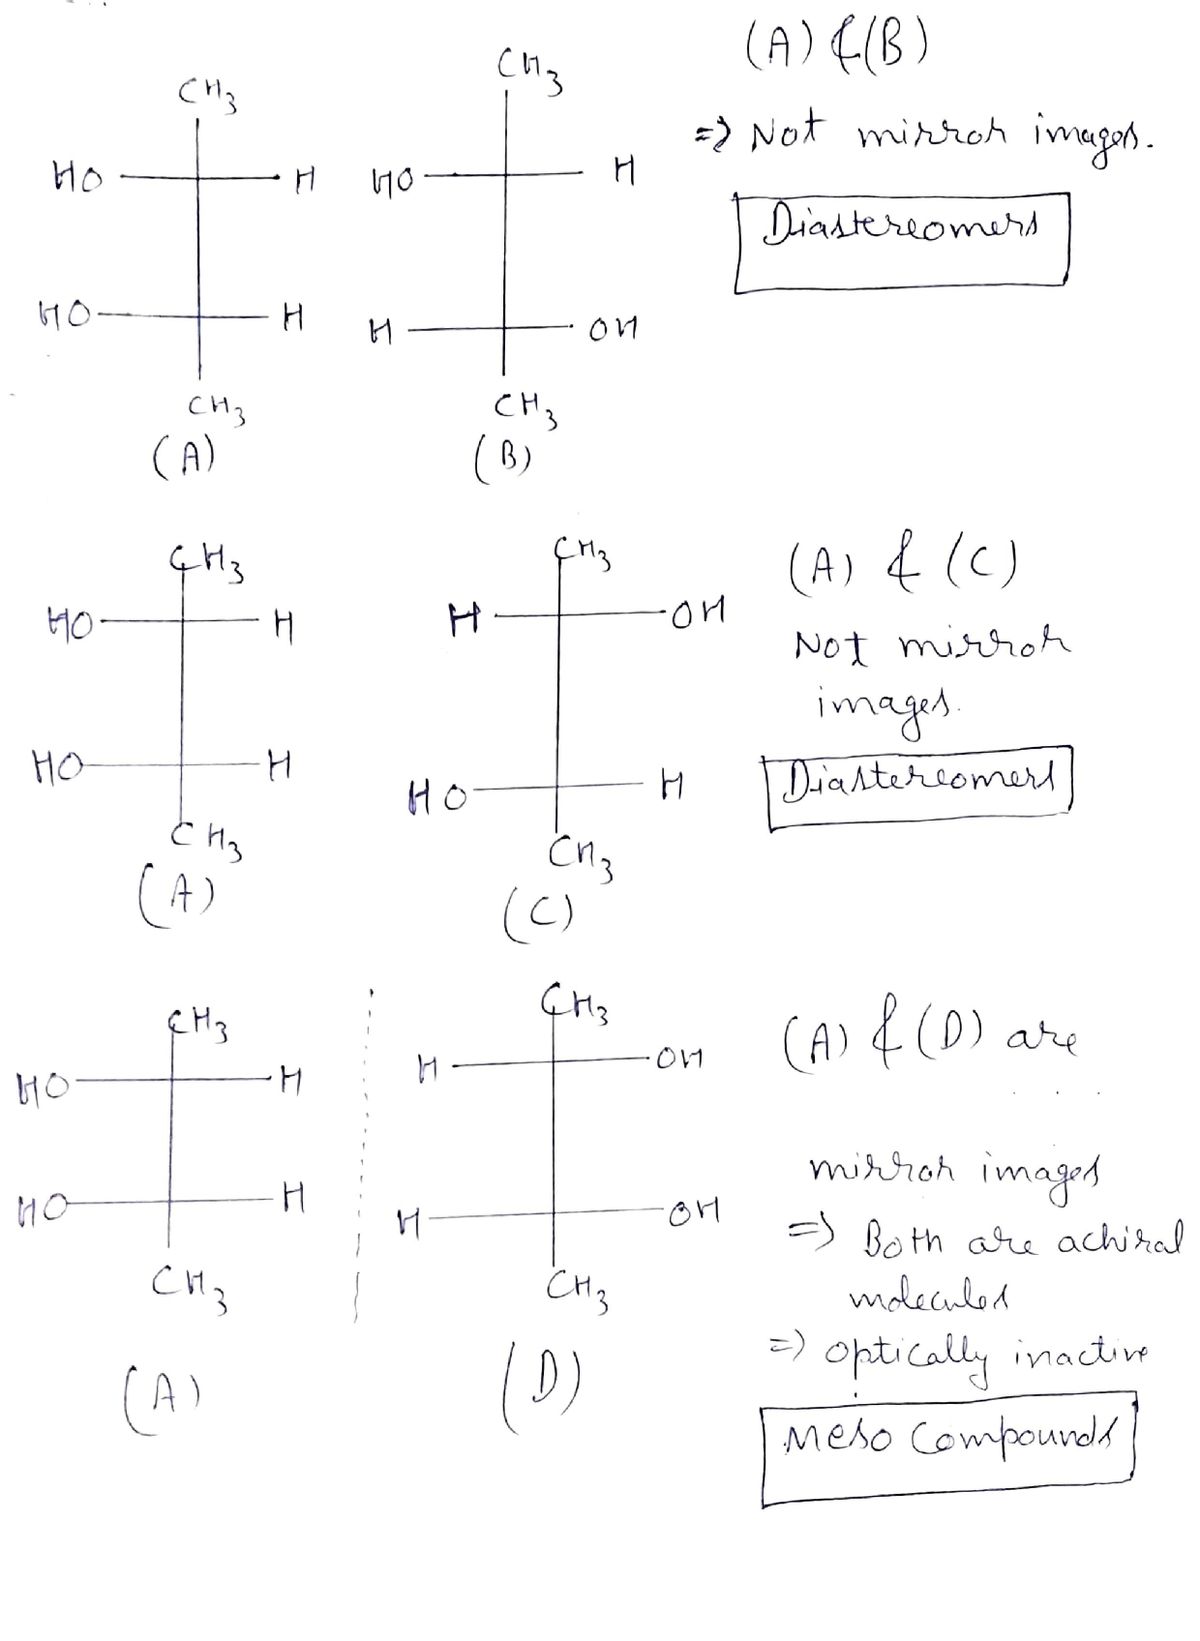 CH3
HO H
HO H
CH3
(A)
CH3
HO H
H OH
CH3
(B)
(A) & (B)
=> Not mirror images.
Diastereomers
CH3
HO H
HO H
CH3
(A)
CH3
H OH
HO H
CH3
(C)
(A) & (C)
Not mirror
images.
Diastereomers
CH3
HO H
HO H
CH3
(A)
CH3
H OH
H OH
CH3
(D)
(A) & (D) are
mirror images
=> Both are achiral
molecules
=> optically inactive
Meso Compounds